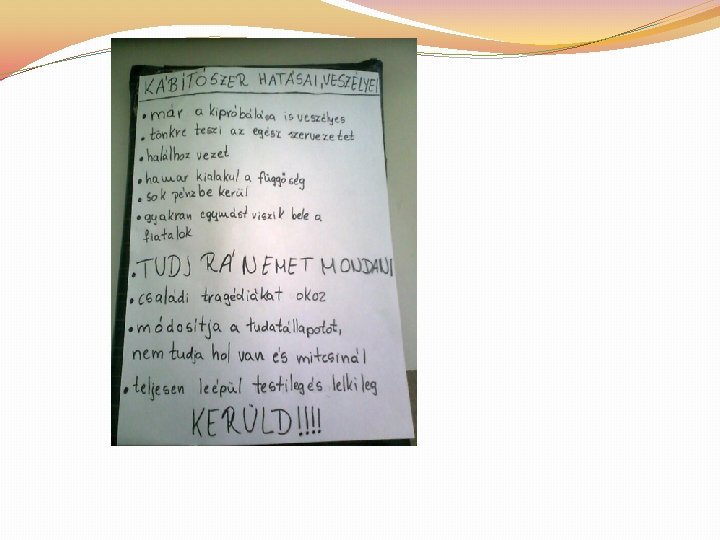 KÁBÍTÓSZER HATÁSAI, VESZÉLYEI
• már a kipróbálása is veszélyes
• tönkre teszi az egész szervezetet
• halálhoz vezet
• hamar kialakul a függőség
• sok pénzbe kerül
• gyakran egymást viszik bele a
fiatalok
• TUDJ RÁ NEMET MONDANI
• családi tragédiákat okoz
• módosítja a tudatállapotot,
nem tudja hol van és mitcsinál
• teljesen leépül testilegés lelkileg
KERÜLD!!!!